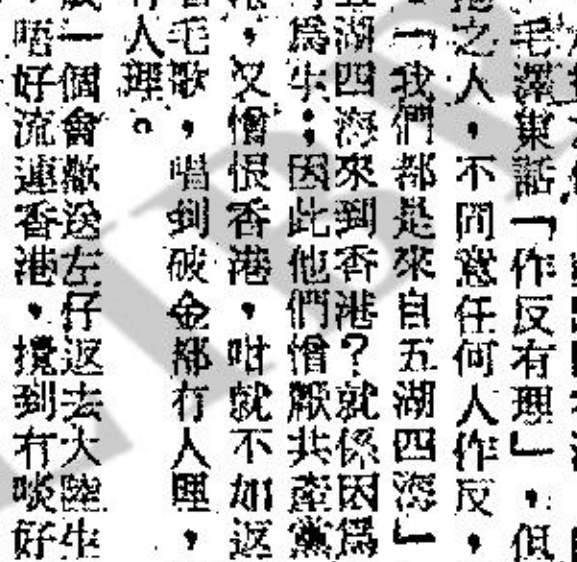 毛澤東話「作反有理」,但
之人,不同意任何人作反,
「我們都是來自五湖四海」
湖四海來到香港?就係因爲
爲生;因此他們憎厭共產黨
,又憎恨香港,咁就不如返
毛歌,唱到破金都冇人理,
人理。
一個會歡送左仔返去大陸生
唔好流連香港,攪到冇啖好